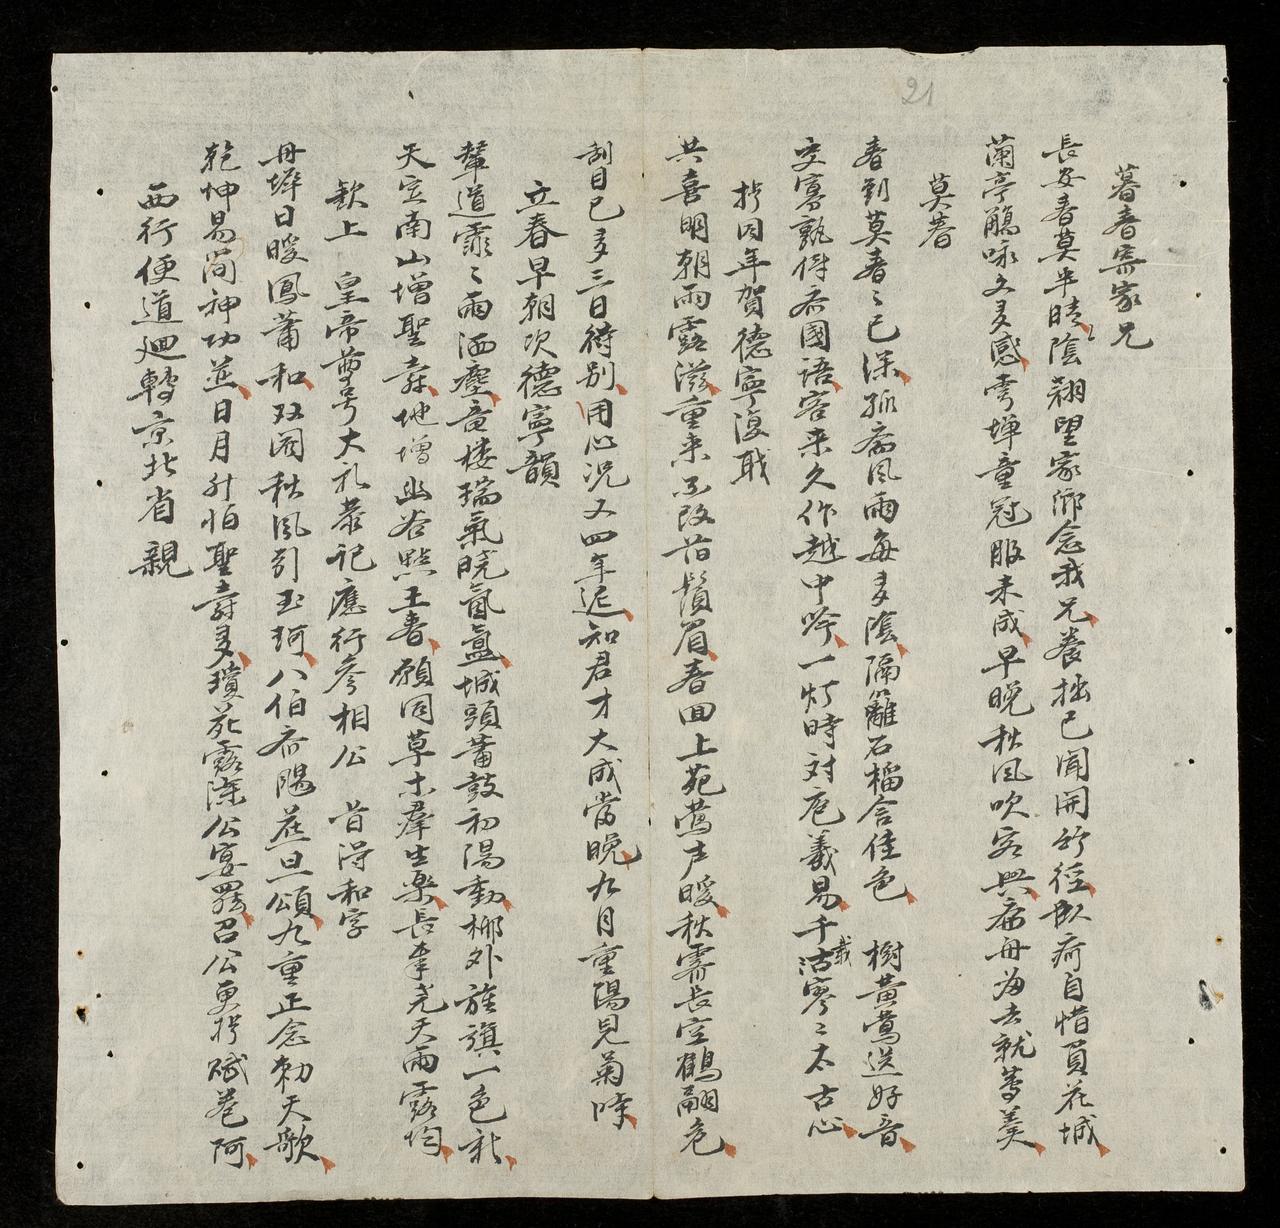 21
暮春寄家兄
長安春莫半晴陰翹望家鄉念我兄養拙已聞開竹徑臥痾自惜負花城
蘭亭觴咏文多感雩墠童冠服未成早晚秋風吹客興扁舟為去就蓴羹
莫春
春到莫春〻已深孤齋風雨每多陰隔籬石榴含佳色 樹黃鶯送好音
交寡孰傳齊國語客來久作越中吟一灯時对庖羲易千載寥〻太古心
挽同年賀德寧復職
共喜明朝雨露滋重來不改旧鬚眉春回上苑鶯声暖秋霽長空鶴翮危
刮目已多三日待別用心况又四年遲知君才大成當晚九月重陽見菊時
立春早朝次德寧韻
輦道霏〻雨洒塵竜楼瑞氣曉氤氳城頭蕭鼓初陽動梛外旌旗一色新
天空南山增聖壽地增幽谷點王春願同草木群生楽長奉尭天雨露均
欽上 皇帝尊号大礼恭記應行參相公 旨得和字
丹墀日暖鳳蕭和双闕秋風引玉珂八伯齊陽茲旦頌九重正念勅天歌
乾坤易簡神功並日月升恒聖壽多瓊苑露深公宴罷召公更擬賦卷阿
西行便道迴轉京北省親